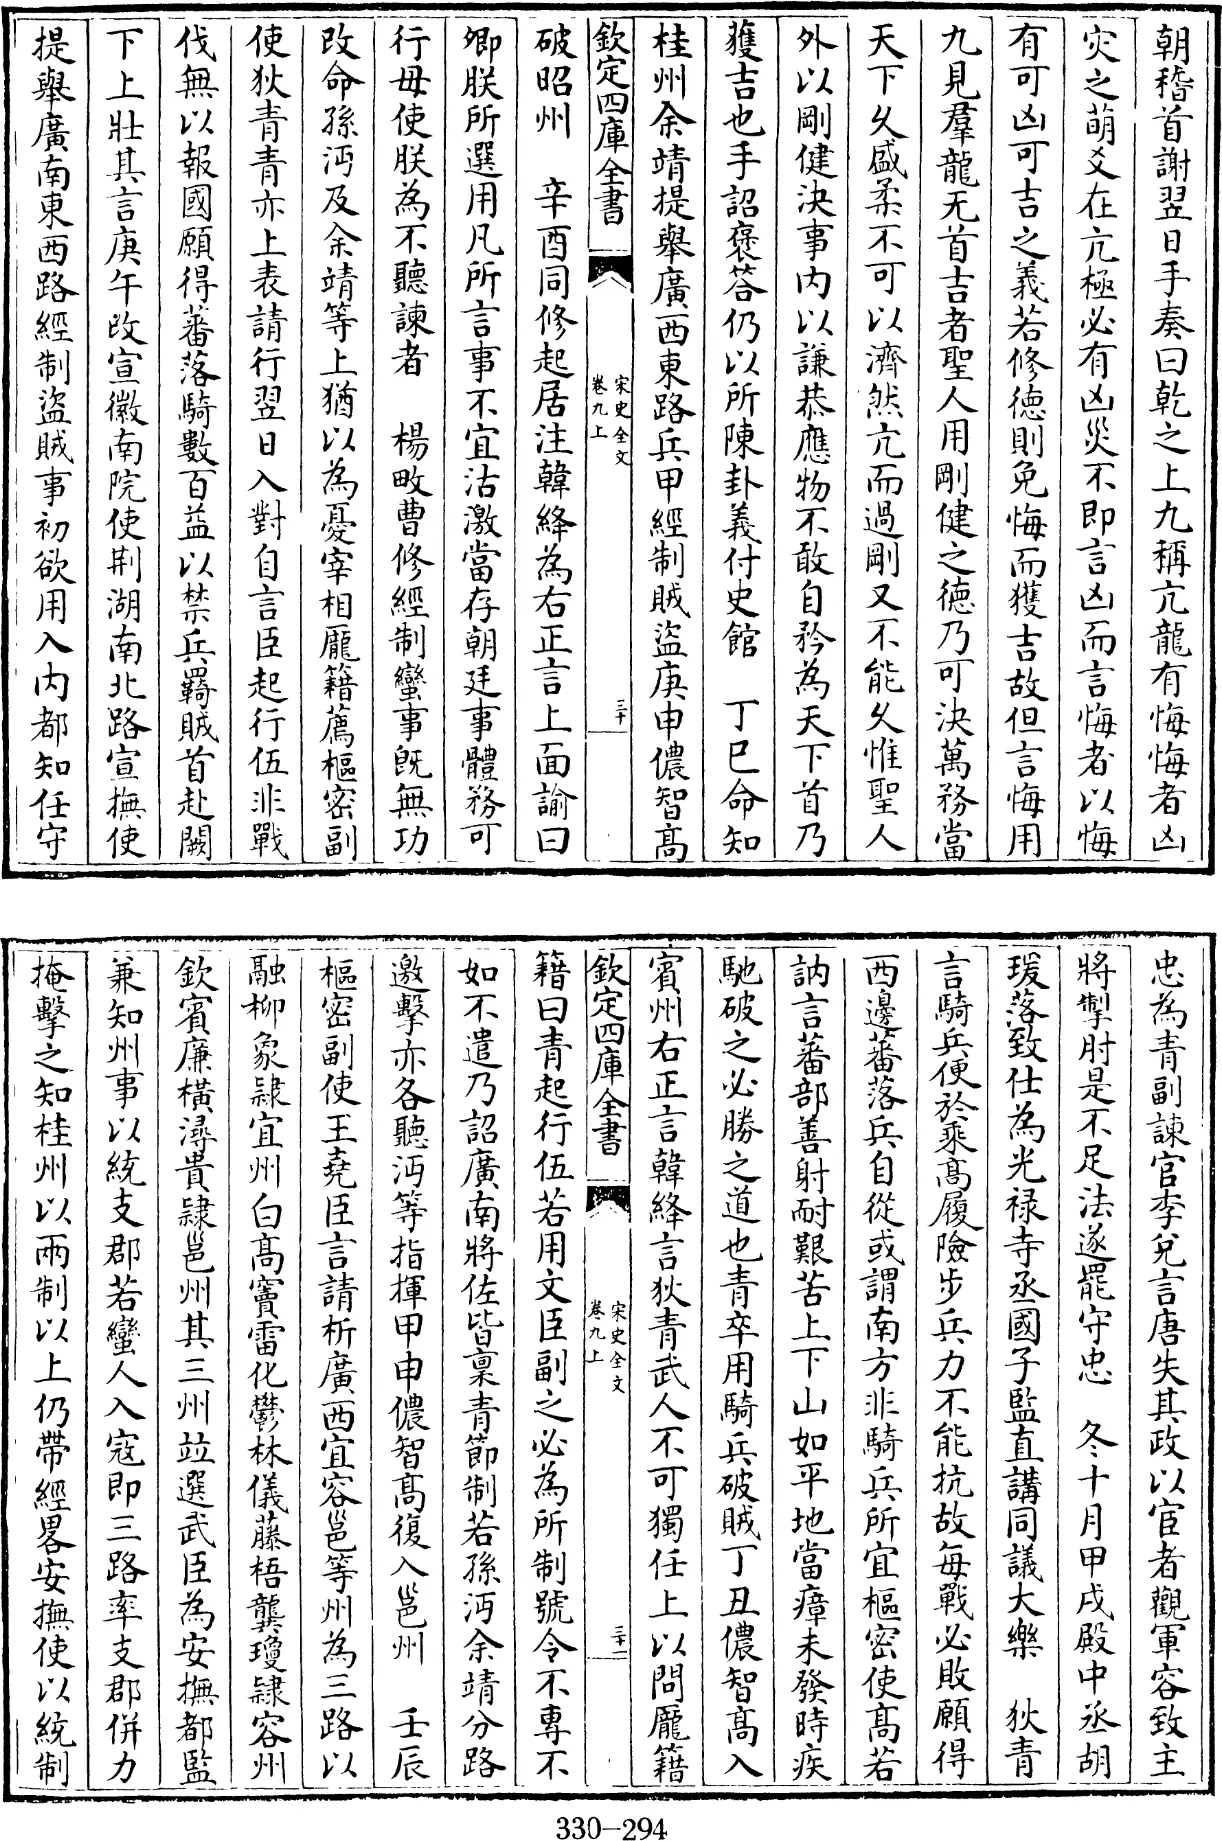 朝稽首謝翌日手奏曰乾之上九稱亢龍有悔悔者凶
灾之萌爻在亢極必有凶災不即言凶而言悔者以悔
有可凶可吉之義若修德則免悔而獲吉故但言悔用
九見羣龍无首吉者聖人用剛健之德乃可決萬務當
天下久盛柔不可以濟然亢而過剛又不能久惟聖人
外以剛健決事内以謙恭應物不敢自矜為天下首乃
獲吉也手詔褒答仍以所陳卦義付史館　丁巳命知
桂州余靖提舉廣西東路兵甲經制賊盜庚申儂智高
欽定四庫全書
宋史全文
卷九上
三十
破昭州　辛酉同修起居注韓絳為右正言上面諭曰
卿朕所選用凡所言事不宜沽激當存朝廷事體務可
行毋使朕為不聽諫者　楊畋曹修經制蠻事既無功
改命孫沔及余靖等上猶以為憂宰相龎籍薦樞密副
使狄青青亦上表請行翌日入對自言臣起行伍非戰
伐無以報國願得蕃落騎數百益以禁兵羈賊首赴闕
下上壯其言庚午改宣徽南院使荆湖南北路宣撫使
提舉廣南東西路經制盜賊事初欲用入内都知任守
忠為青副諫官李兌言唐失其政以宦者觀軍容致主
將掣肘是不足法遂罷守忠　冬十月甲戌殿中丞胡
瑗落致仕為光禄寺丞國子監直講同議大樂　狄青
言騎兵便於乘高履險步兵力不能抗故每戰必敗願得
西邊蕃落兵自從或謂南方非騎兵所宜樞密使高若
訥言蕃部善射耐艱苦上下山如平地當瘴未發時疾
馳破之必勝之道也青卒用騎兵破賊丁丑儂智高入
賓州右正言韓絳言狄青武人不可獨任上以問龎籍
欽定四庫全書
宋史全文
卷九上
三十一
籍曰青起行伍若用文臣副之必為所制號令不專不
如不遣乃詔廣南將佐皆稟青節制若孫沔余靖分路
邀擊亦各聽沔等指揮甲申儂智高復入邕州　壬辰
樞密副使王堯臣言請析廣西宜容邕等州為三路以
融柳象隸宜州白高竇雷化鬱林儀藤梧龔瓊隸容州
欽賓廉横潯貴隸邕州其三州並選武臣為安撫都監
兼知州事以統支郡若蠻人入寇即三路率支郡併力
掩擊之知桂州以兩制以上仍帶經畧安撫使以統制
330-294